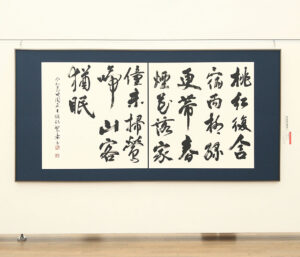 桃紅復含
宿雨柳緑
更帶春
煙花落家
僮未掃鶯
啼山客
猶眠